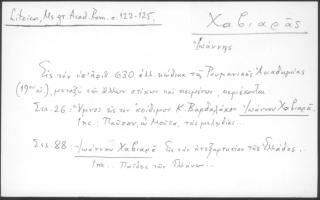 Litzica, Ms gr. Acad. Rom. σ. 122-125.
Χαβιαρᾶς
Ἰωάννης
Εἰς τὸν ὑπ' ἀριθ. 630 ἑλλ. κώδικα τῆς Ρουμανικῆς Ἀκαδημίας
(19ου αἰ.), μεταξὺ τῶν ἄλλων στίχων καὶ κειμένων, περιέχονται:
Σελ. 26: Ὕμνος εἰς τὸν ἀοίδιμον Κ. Βαρδαλάχον Ἰωάννου Χαβιαρᾶ.
Inc.: Παῦσον, ὦ Μοῦσα, τὰς μελῳδίας...
Σελ. 88: Ἰωάννου Χαβιαρᾶ Εἰς τὴν ἀνεξαρτησίαν τῆς Ἑλλάδος.
Inc.: Παῖδες τῶν Ἑλλήνων...